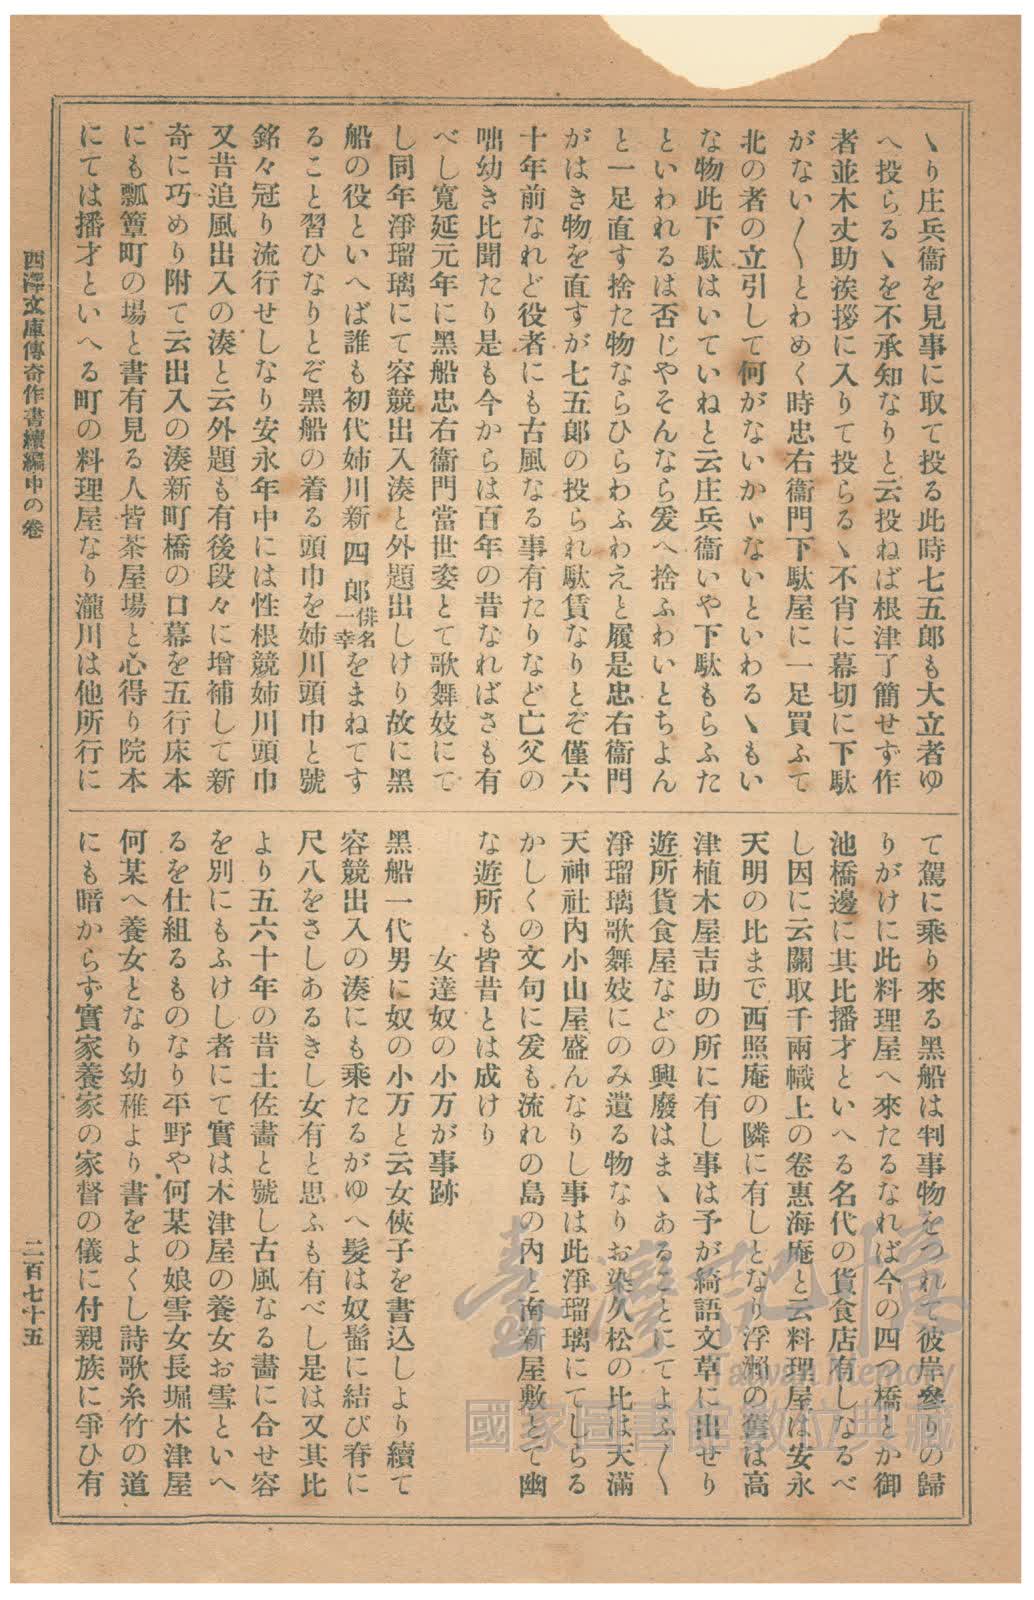 ゝり庄兵衞を見事に取て投る此時七五郎も大立者ゆ
へ投らるゝを不承知なりと云投ねば根津了簡せず作
者並木丈助挨拶に入りて投らるゝ不肖に幕切に下駄
がない〱とわめく時忠右衞門下駄屋に一足買ふて
北の者の立引して何がないかゞないといわるゝもい
な物此下駄はいていねと云庄兵衞いや下駄もらふた
といわれるは否じやそんなら爰へ捨ふわいとちよん
と一足直す捨た物ならひらわふわえと履是忠右衞門
がはき物を直すが七五郎の投られ駄賃なりとぞ僅六
十年前なれど役者にも古風なる事有たりなど亡父の
咄幼き比聞たり是も今からは百年の昔なればさも有
べし寬延元年に黑船忠右衞門當世姿とて歌舞妓にて
し同年淨瑠璃にて容競出入湊と外題出しけり故に黑
船の役といへば誰も初代姉川新四郎俳名一幸をまねてす
ること習ひなりとぞ黑船の着る頭巾を姉川頭巾と號
銘々冠り流行せしなり安永年中には性根競姉川頭巾
又昔追風出入の湊と云外題も有後段々に增補して新
奇に巧めり附て云出入の湊新町橋の口幕を五行床本
にも瓢簞町の場と書有見る人皆茶屋場と心得り院本
にては播才といへる町の料理屋なり瀧川は他所行に
て駕に乘り來る黑船は判事物をつれて彼岸參りの歸
りがけに此料理屋へ來たるなれば今の四つ橋とか御
池橋邊に其比播才といへる名代の貨食店有しなるべ
し因に云關取千兩幟上の卷惠海庵と云料理屋は安永
天明の比まで西照庵の隣に有しとなり浮瀨の舊は高
津植木屋吉助の所に有し事は予が綺語文草に出せり
遊所貨食屋などの興廢はまゝあることにてよふ〱
淨瑠璃歌舞妓にのみ遺る物なりお染久松の比は天滿
天神社內小山屋盛んなりし事は此淨瑠璃にてしらる
かしくの文句に爰も流れの島の內と南新屋敷とて幽
な遊所も皆昔とは成けり
女達奴の小万が事跡
黑船一代男に奴の小万と云女俠子を書込しより續て
容競出入の湊にも乘たるがゆへ髮は奴髷に結び脊に
尺八をさしあるきし女有と思ふも有べし是は又其比
より五六十年の昔土佐畵と號し古風なる畵に合せ容
を別にもふけし者にて實は木津屋の養女お雪といへ
るを仕組るものなり平野や何某の娘雪女長堀木津屋
何某へ養女となり幼稚より書をよくし詩歌糸竹の道
にも暗からず實家養家の家督の儀に付親族に爭ひ有
西澤文庫傳奇作書續編中の卷
二百七十五
臺灣記憶
Taiwan Memory
國家圖書館數位典藏